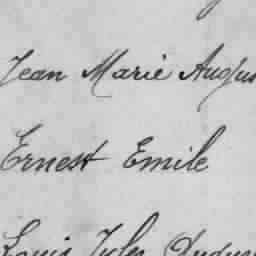 Jean Marie Augus
Ernest Emile
Louis Jules